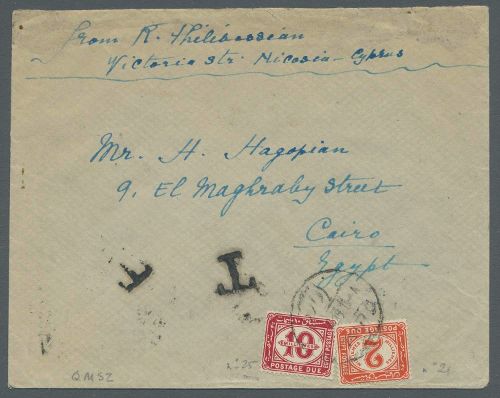 from K. Philibossian
Victoria Str. Nicosia - Cyprus
Mr. H. Hagopian
9. El Maghraby Street
Cairo
Egypt
T
T
10
POSTAGE DUE
2
POSTAGE DUE
n° 25
n° 21
QMSZ